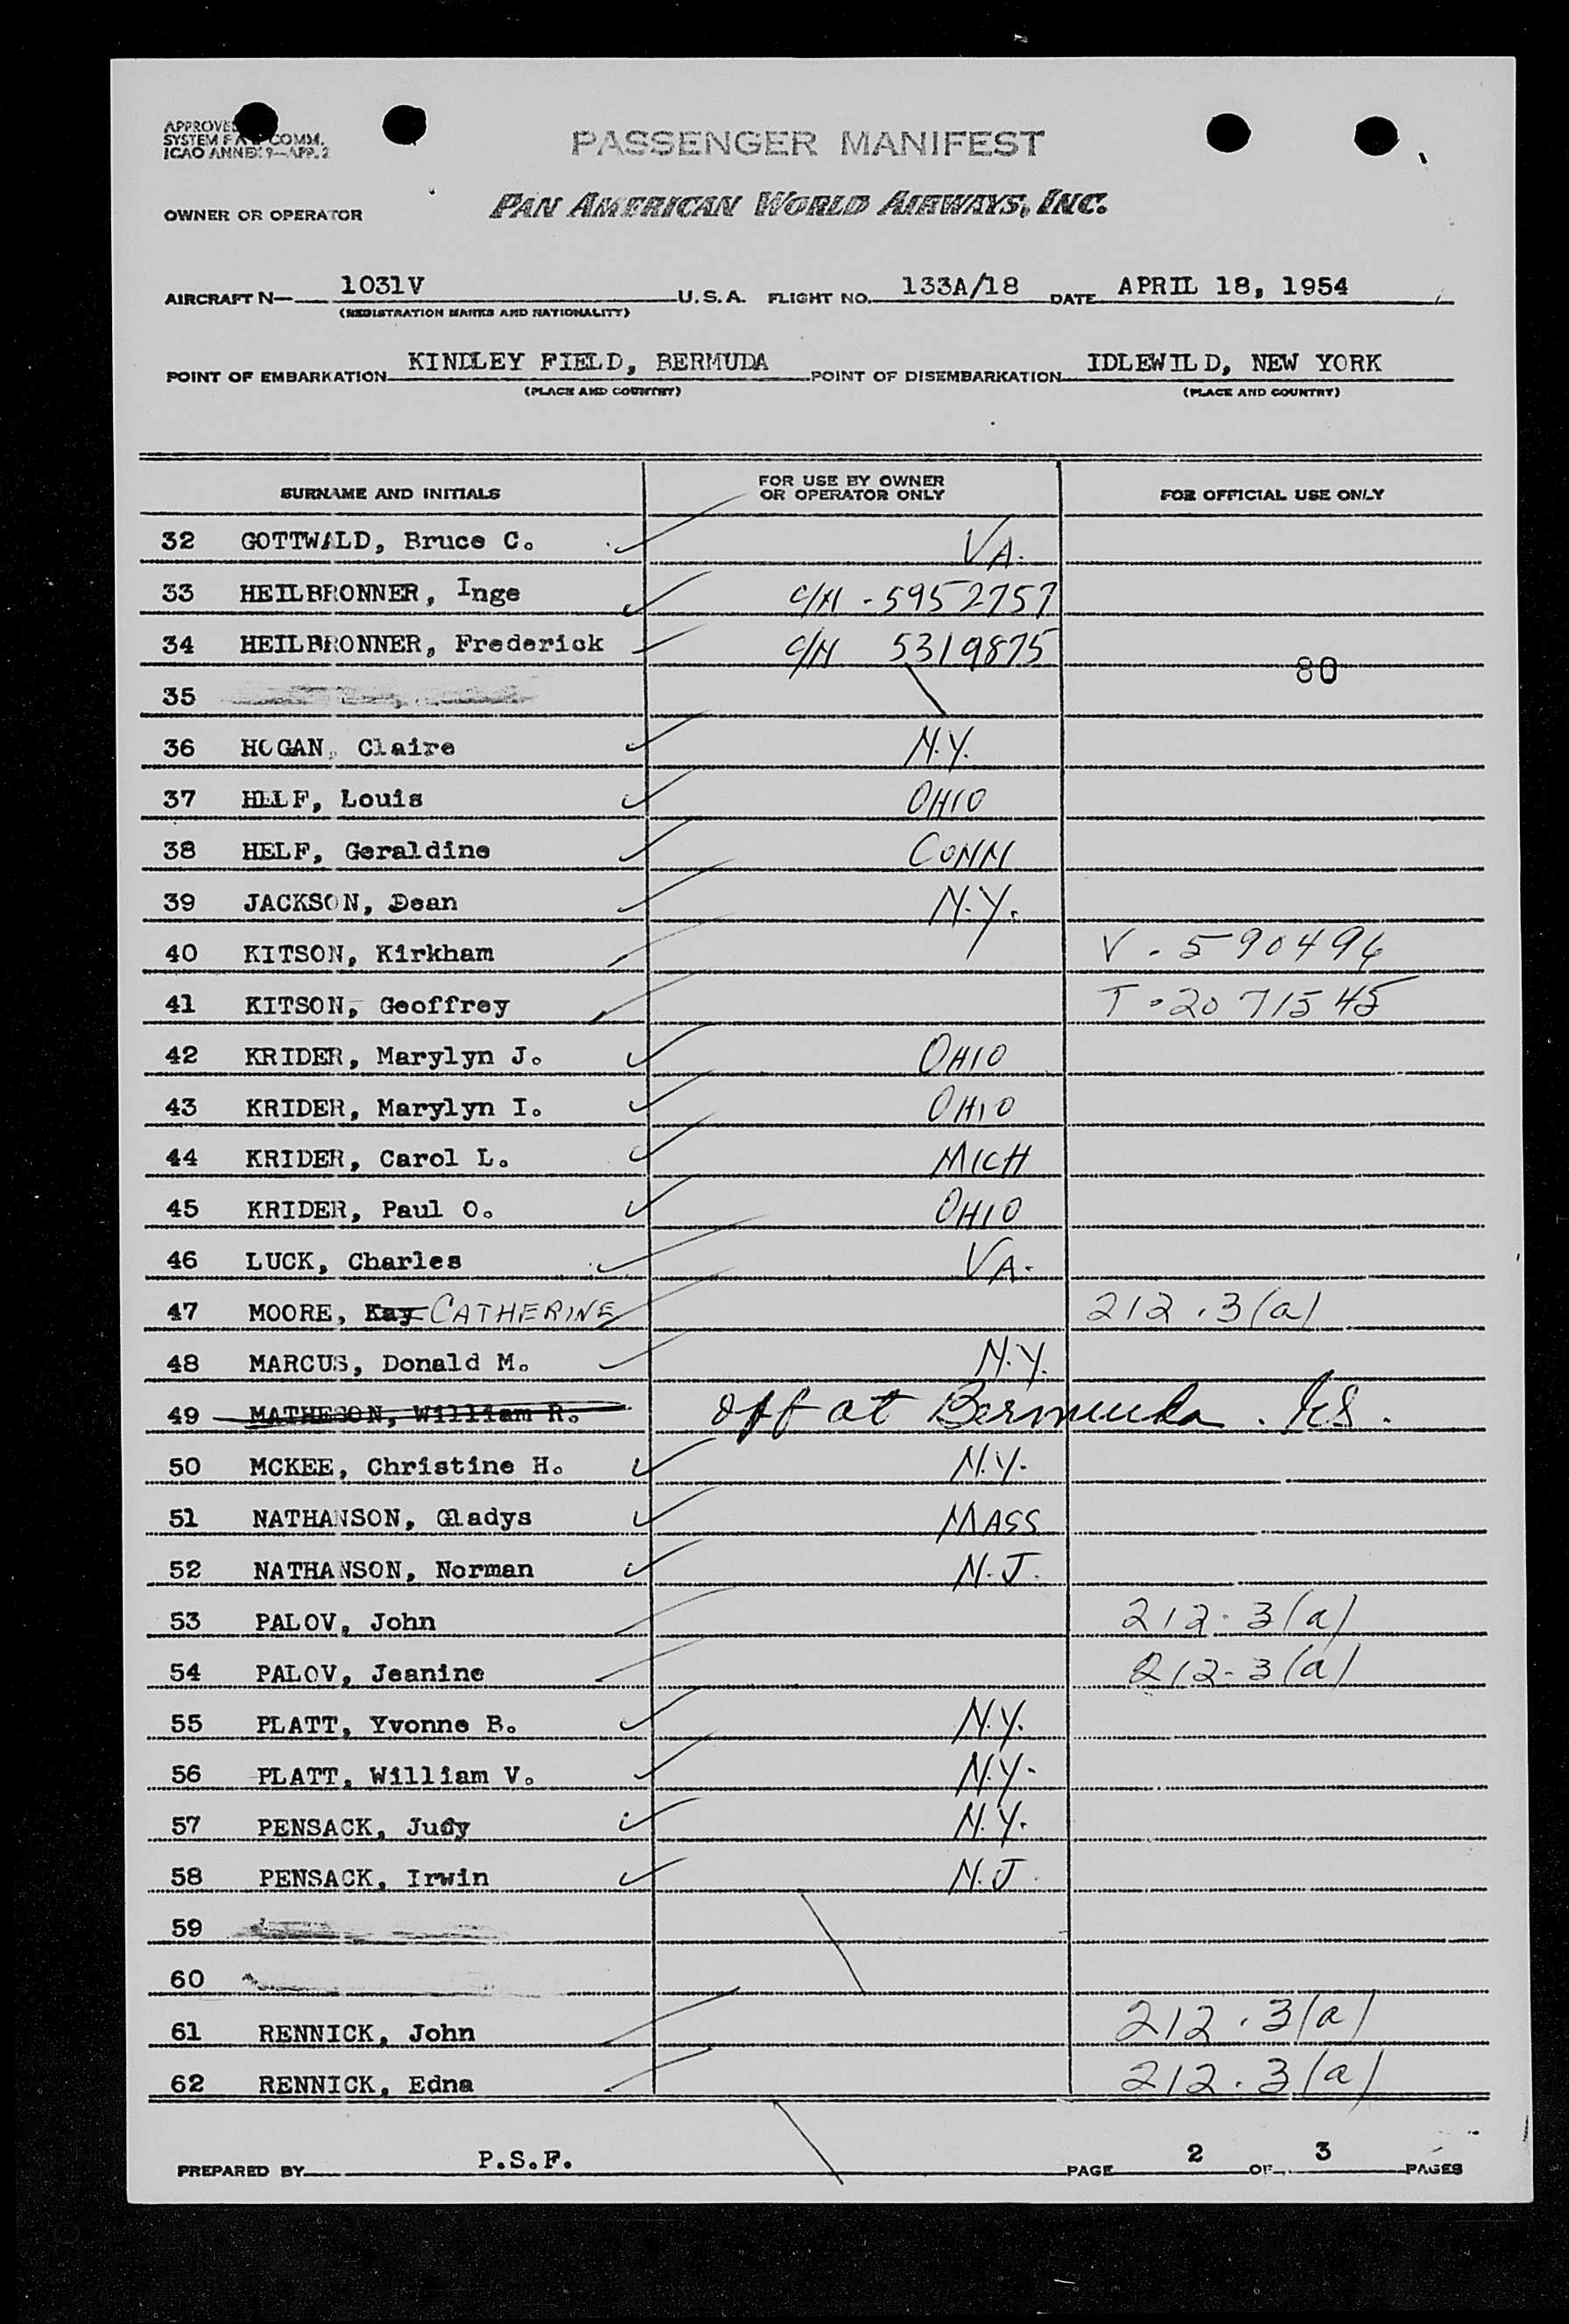 APPROVED
SYSTEM FAL COMM.
ICAO ANNEX 9—APP. 2
PASSENGER MANIFEST
OWNER OR OPERATOR PAN AMERICAN WORLD AIRWAYS, INC.
AIRCRAFT N— 1031V U.S.A. FLIGHT NO. 133A/18 DATE APRIL 18, 1954
(REGISTRATION MARKS AND NATIONALITY)
POINT OF EMBARKATION KINDLEY FIELD, BERMUDA POINT OF DISEMBARKATION IDLEWILD, NEW YORK
(PLACE AND COUNTRY) (PLACE AND COUNTRY)
SURNAME AND INITIALS FOR USE BY OWNER OR OPERATOR ONLY FOR OFFICIAL USE ONLY
32 GOTTWALD, Bruce C. VA.
33 HEILBRONNER, Inge C/N - 5952757
34 HEILBRONNER, Frederick C/N 5319875
80
35
36 HOGAN, Claire N.Y.
37 HELF, Louis OHIO
38 HELF, Geraldine CONN
39 JACKSON, Dean N.Y.
40 KITSON, Kirkham V - 590496
41 KITSON, Geoffrey T - 2071545
42 KRIDER, Marylyn J. OHIO
43 KRIDER, Marylyn I. OHIO
44 KRIDER, Carol L. MICH
45 KRIDER, Paul O. OHIO
46 LUCK, Charles VA.
47 MOORE, Kay CATHERINE 212.3(a)
48 MARCUS, Donald M. N.Y.
49 MATHESON, William R. Off at Bermuda.
50 MCKEE, Christine H. N.Y.
51 NATHANSON, Gladys MASS
52 NATHANSON, Norman N.J.
53 PALOV, John 212.3(a)
54 PALOV, Jeanine 212.3(a)
55 PLATT, Yvonne B. N.Y.
56 PLATT, William V. N.Y.
57 PENSACK, Judy N.Y.
58 PENSACK, Irwin N.J.
59
60
61 RENNICK, John 212.3(a)
62 RENNICK, Edna 212.3(a)
PREPARED BY P.S.F. PAGE 2 OF 3 PAGES